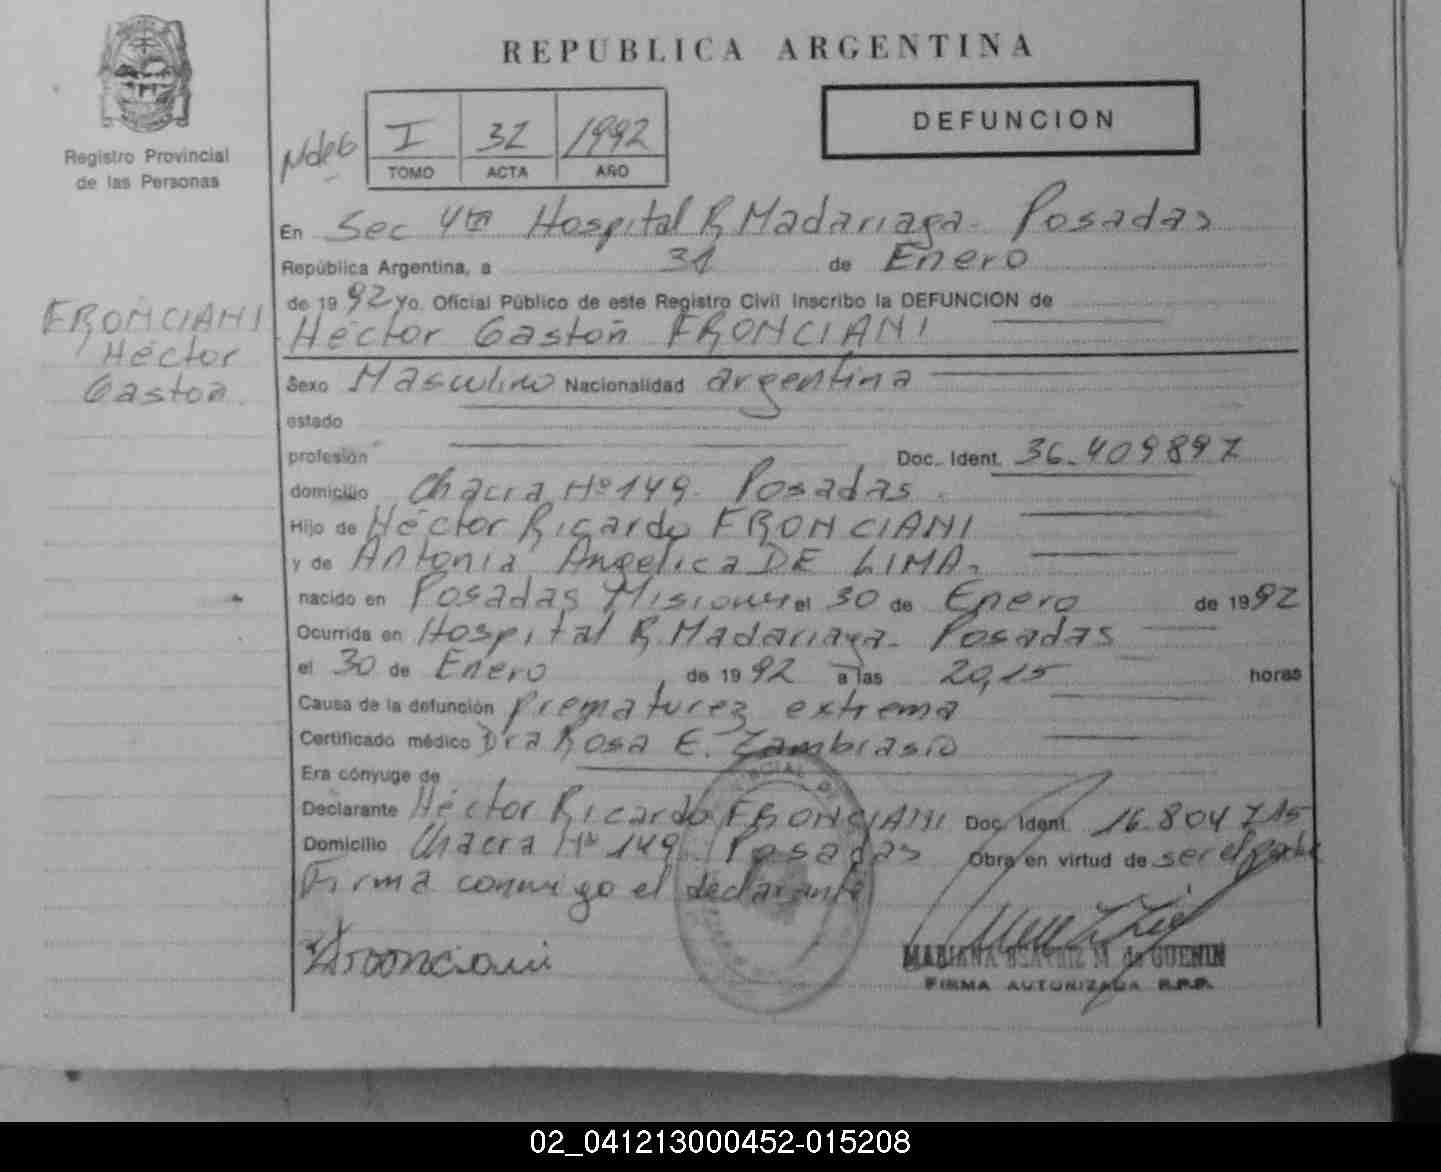 REPUBLICA ARGENTINA
Registro Provincial
de las Personas
I 32 1992
TOMO ACTA AÑO
DEFUNCION
En Sec 4ta Hospital R Madariaga - Posadas
República Argentina, a 31 de Enero
de 1992 Yo. Oficial Público de este Registro Civil Inscribo la DEFUNCION de
Héctor Gastón FRONCIANI
FRONCIANI
Héctor
Gastón
Sexo Masculino Nacionalidad argentina
estado
profesión Doc. Ident. 36.409897
domicilio Chacra Nº 149 - Posadas
Hijo de Héctor Ricardo FRONCIANI
y de Antonia Angélica DE LIMA.
nacido en Posadas Misiones el 30 de Enero de 1992
Ocurrida en Hospital R. Madariaga - Posadas
el 30 de Enero de 1992 a las 20,15 horas
Causa de la defunción prematurez extrema
Certificado médico Dra Rosa E.
Era cónyuge de
Declarante Héctor Ricardo FRONCIANI Doc. Ident. 16.804715
Domicilio Chacra Nº 149 Posadas Obra en virtud de ser el padre
Firma conmigo el declarante
MARIANA BEATRIZ M de GUENIN
FIRMA AUTORIZADA R.P.P.
02_041213000452-015208